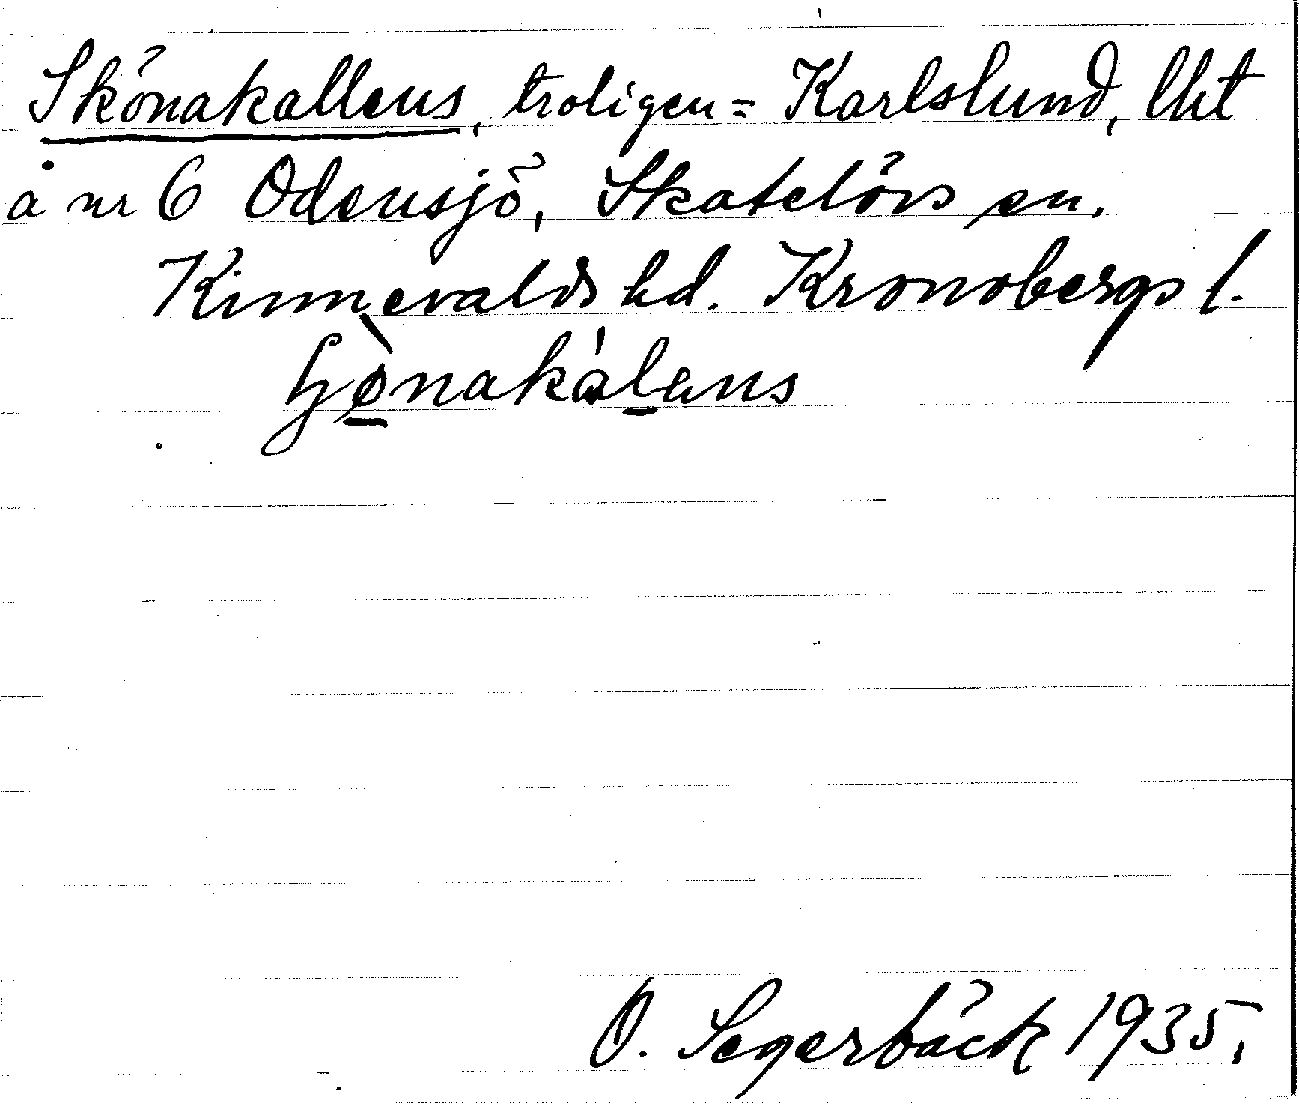 Skönakallens, troligen = Karlslund, lht
å nr 6 Odensjö, Skatelövs sn.
Kinnevalds hd. Kronobergs l.
O. Segerbäck 1935.